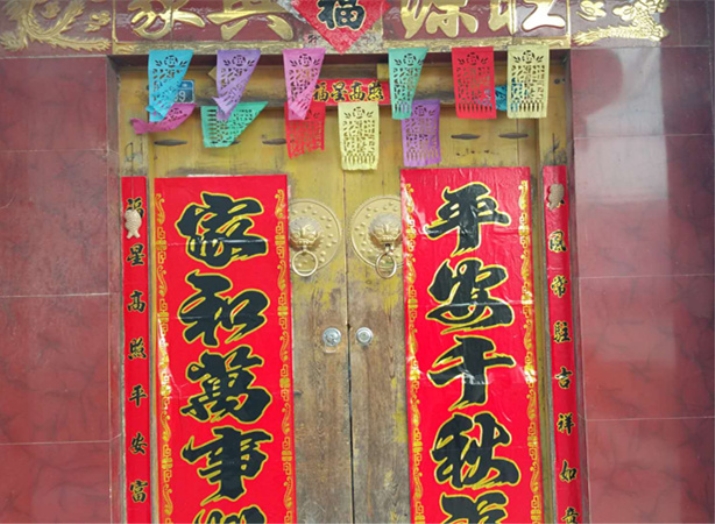 福
福星高照
福星高照平安富
家和萬事
平安千秋
風常駐吉祥如意